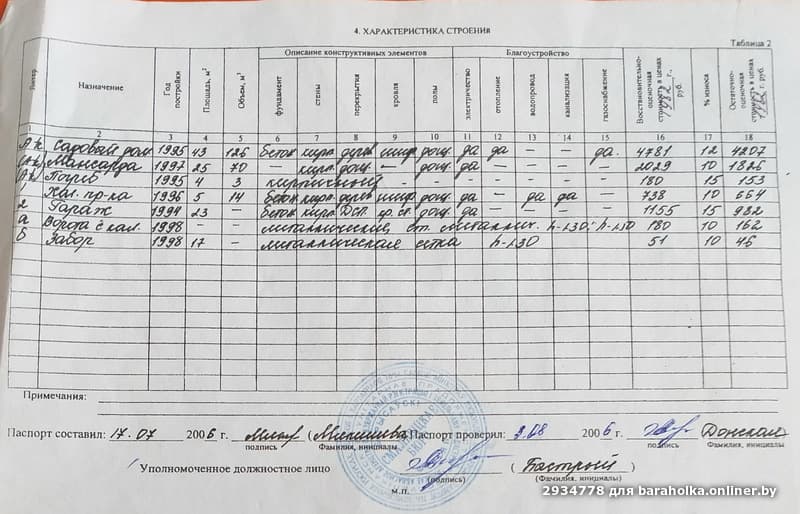 4. ХАРАКТЕРИСТИКА СТРОЕНИЯ
Таблица 2
Литер. Назначение Год постройки Площадь, м² Объем, м³ Описание конструктивных элементов Благоустройство Восстановительно-оценочная стоимость в ценах 1982 г., руб. % износа Остаточно-оценочная стоимость в ценах г. руб.
фундамент стены перекрытия кровля полы электричество отопление водопровод канализация газоснабжение
1 2 3 4 5 6 7 8 9 10 11 12 13 14 15 16 17 18
Садовый дом 1995 43 126 бетон кирп. дерев шиф дощ да да — — да. 4781 12 4207
Мансарда 1997 25 70 — кирп. дощ. — дощ да — — — — 2029 10 1826
Погреб 1995 4 3 кирпичный 180 15 153
1 Хол. пр-ка 1996 5 14 бетон кирп. дерев шиф дощ да — да да — 738 10 664
2 Гараж 1994 23 — бетон кирп. дощ да — — — — 1155 15 982
а Ворота с кал. 1998 — — металлические, ст. металлич. h-1.30; h-1.50 180 10 162
б Забор 1998 17 — металлическая сетка h-1.30 51 10 46
Примечания:
Паспорт составил: 17.07 2006 г. Паспорт проверил: 2006 г. Донская
подпись Фамилия, инициалы подпись Фамилия, инициалы
Уполномоченное должностное лицо
(подпись) (Фамилия, инициалы)
м.п.
2934778 для baraholka.onliner.by